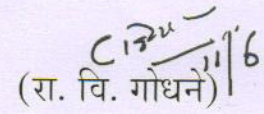 11/6
(रा. वि. गोधने)